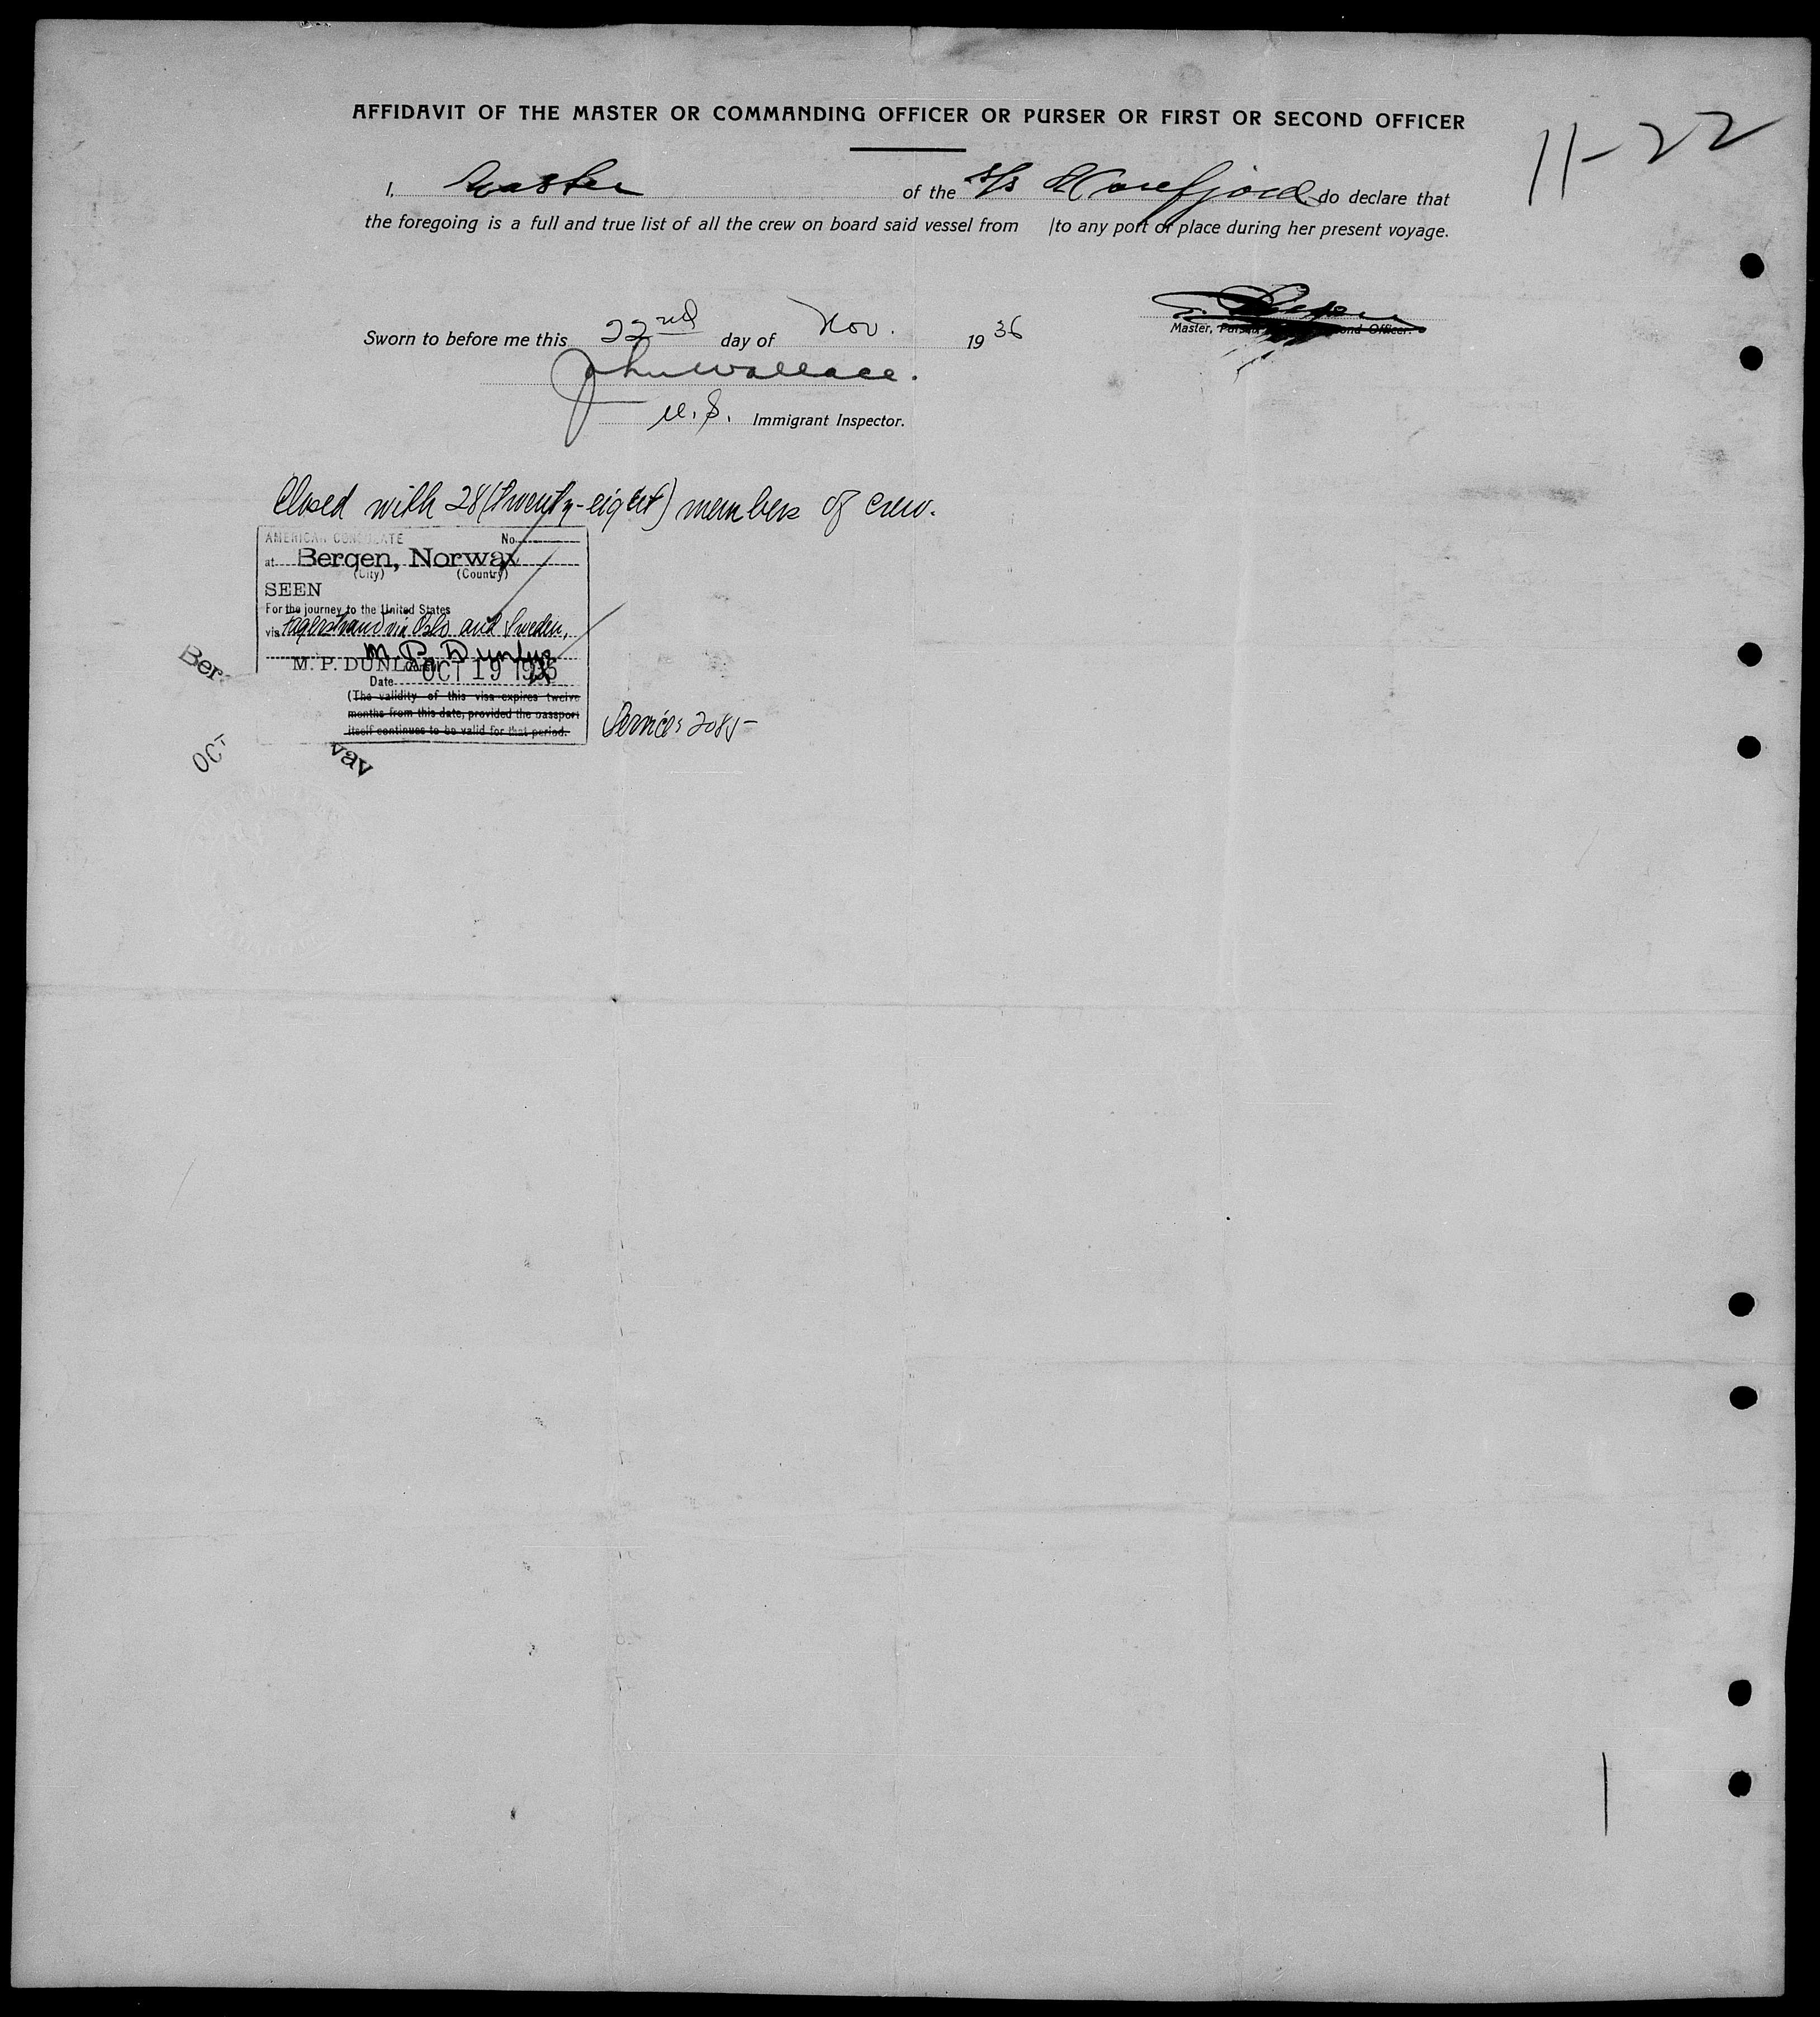 AFFIDAVIT OF THE MASTER OR COMMANDING OFFICER OR PURSER OR FIRST OR SECOND OFFICER
11-22
I, Master of the S/s Horefjord do declare that
the foregoing is a full and true list of all the crew on board said vessel from to any port or place during her present voyage.
Sworn to before me this 22nd day of Nov. 1936
Master, Officer.
John Wallace.
U.S. Immigrant Inspector.
Closed with 28 (twenty-eight) members of crew.
AMERICAN CONSULATE No.
at Bergen, Norway
(City) (Country)
SEEN
For the journey to the United States
via Fagerstrand via Oslo and Sweden,
M. P. Dunlap
M. P. DUNLAP
Date OCT 19 1936
(The validity of this visa expires twelve
months from this date, provided the passport
itself continues to be valid for that period.
Service: 2085-
Ber
OCT
way